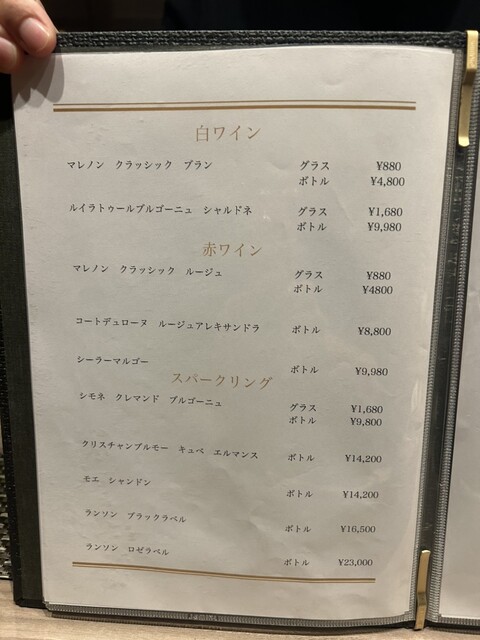 白ワイン
マレノン クラッシック ブラン グラス ¥880
ボトル ¥4,800
ルイラトゥールブルゴーニュ シャルドネ グラス ¥1,680
ボトル ¥9,980
赤ワイン
マレノン クラッシック ルージュ グラス ¥880
ボトル ¥4800
コートデュローヌ ルージュアレキサンドラ ボトル ¥8,800
シーラーマルゴー ボトル ¥9,980
スパークリング
シモネ クレマンド ブルゴーニュ グラス ¥1,680
ボトル ¥9,800
クリスチャンブルモー キュベ エルマンス ボトル ¥14,200
モエ シャンドン ボトル ¥14,200
ランソン ブラックラベル ボトル ¥16,500
ランソン ロゼラベル ボトル ¥23,000